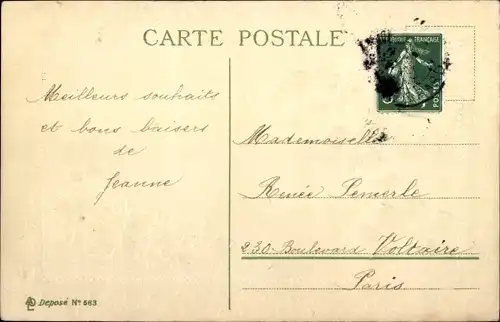 CARTE POSTALE
Meilleurs souhaits
et bons baisers
de
Jeanne
Mademoiselle
Renée Pemerle
230 Boulevard Voltaire
Paris
Déposé Nº 563